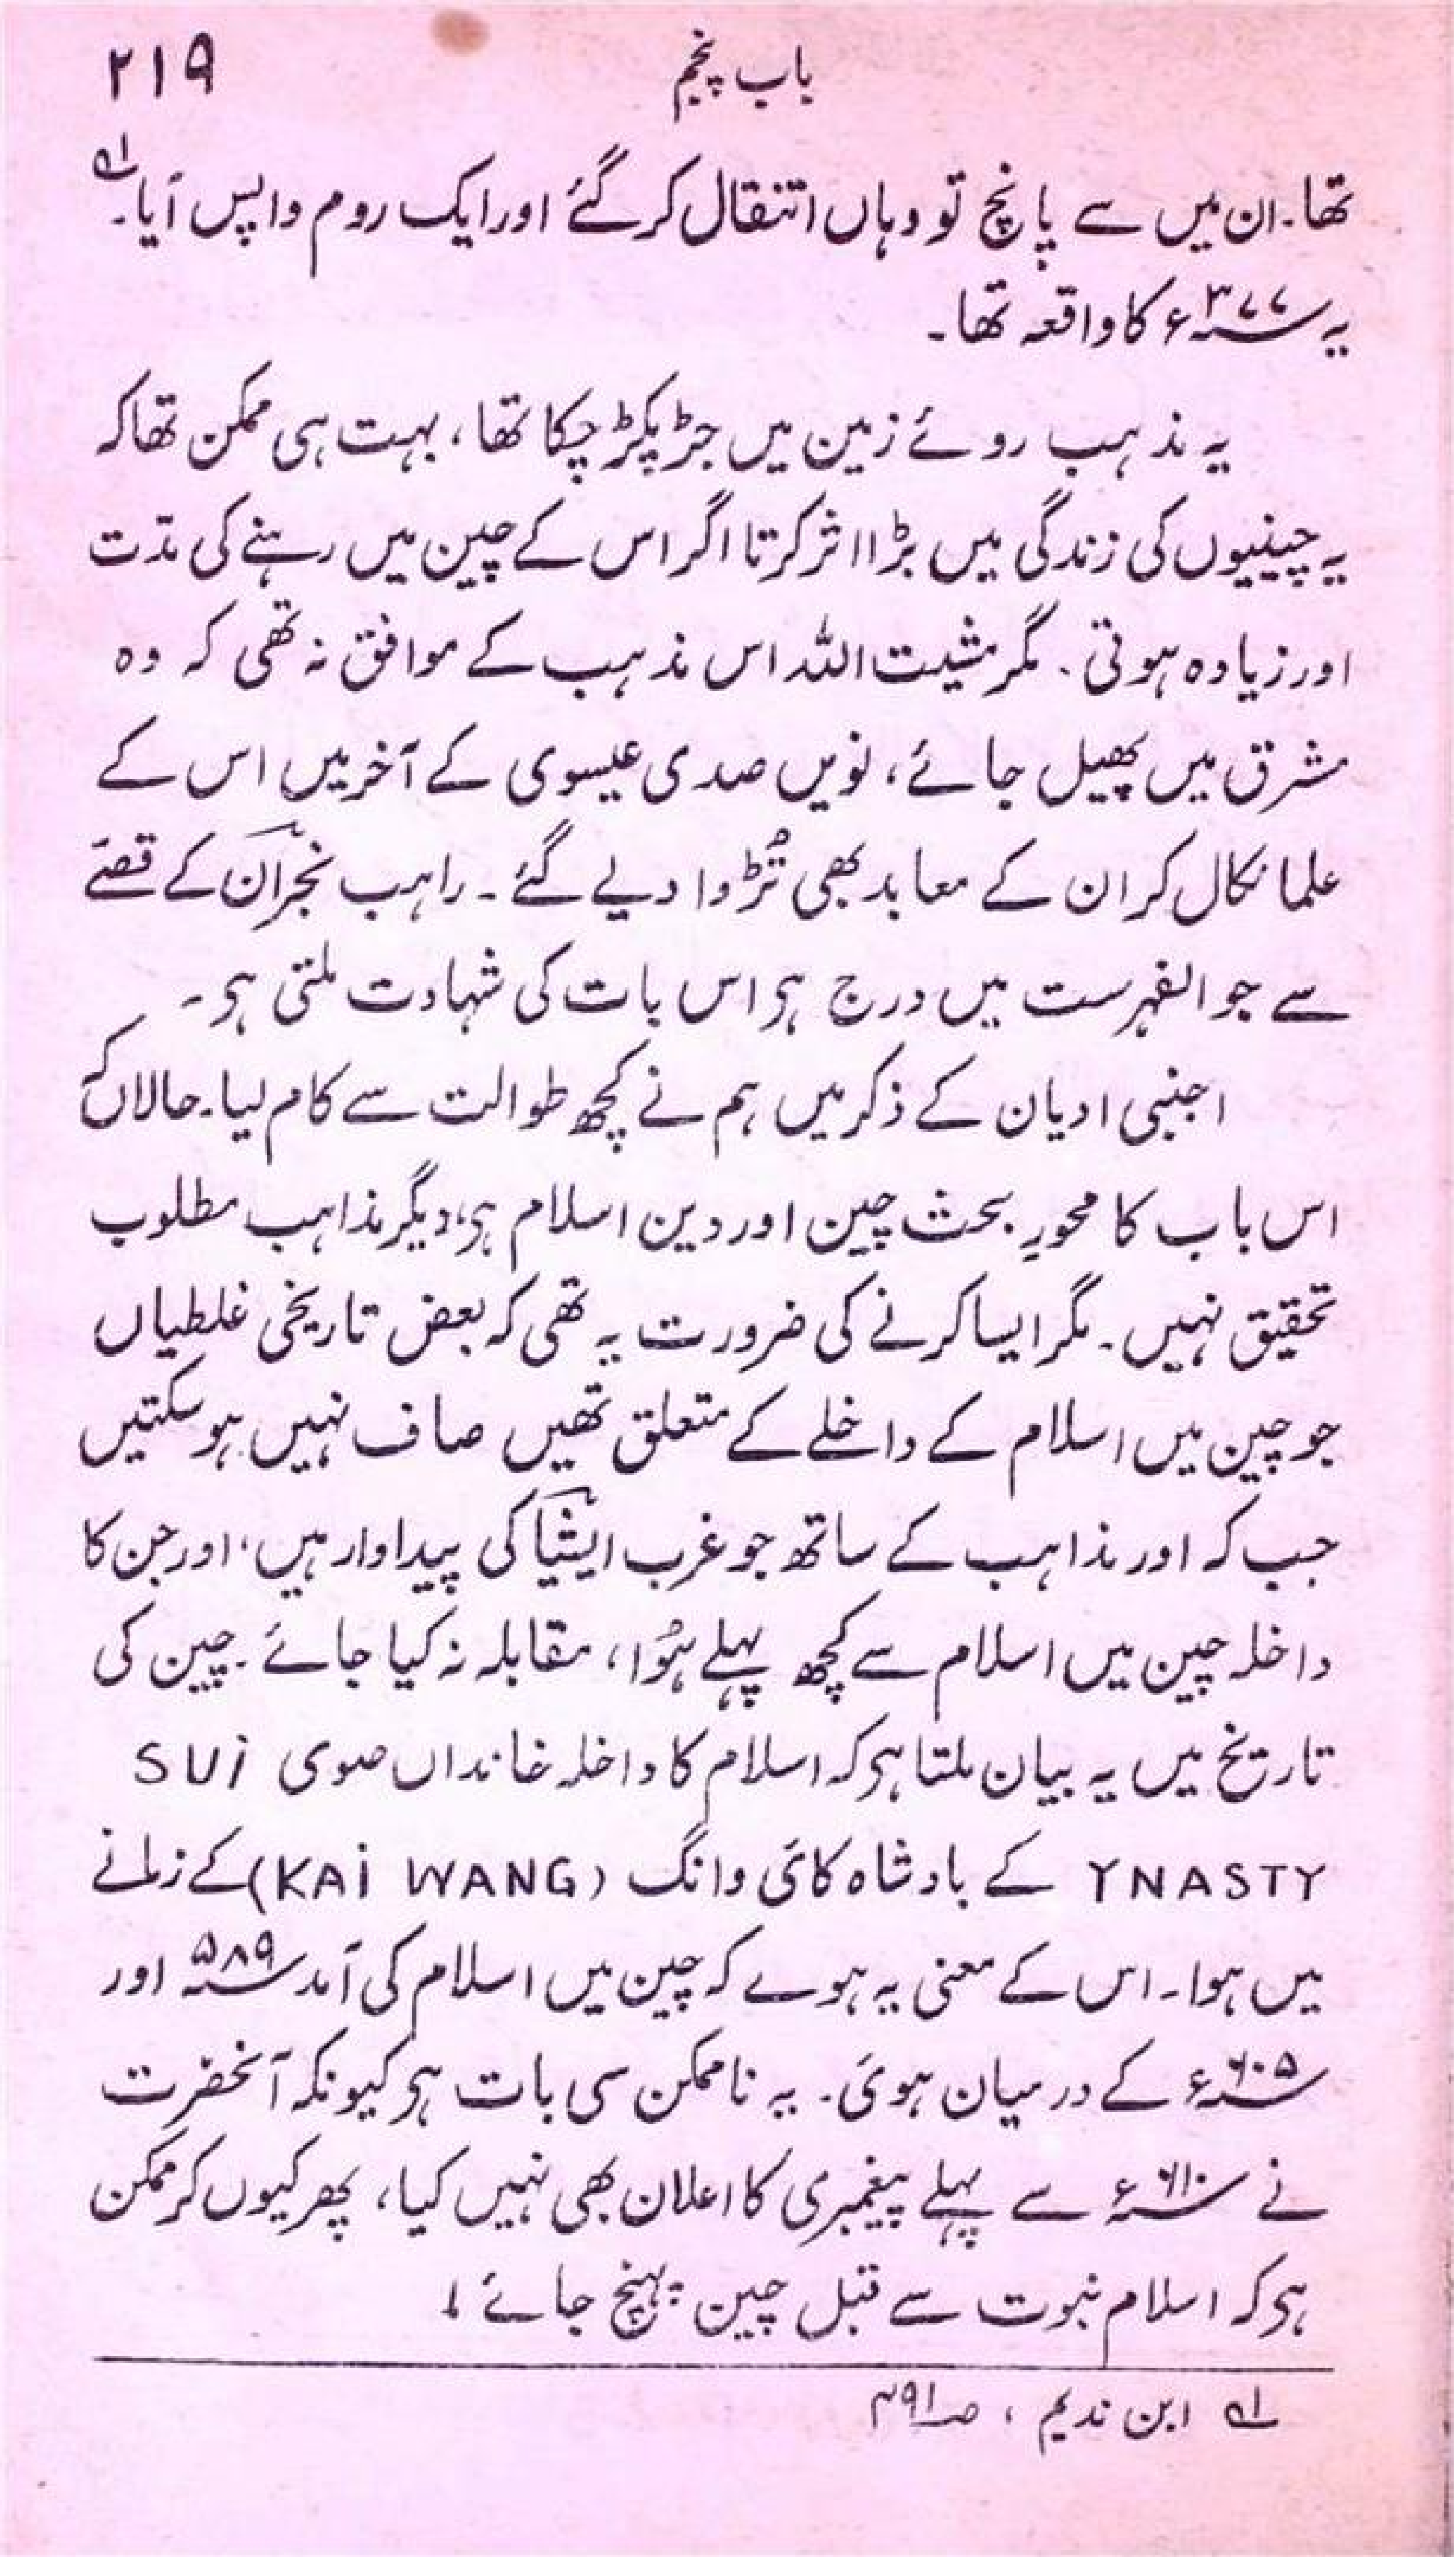 باب پنجم ۲۱۹
تھا۔ ان میں سے پانچ تو وہاں انتقال کر گئے اور ایک روم واپس آیا۔ لہ
یہ ۳۷۷ء کا واقعہ تھا۔
یہ مذہب روئے زمین میں جڑ پکڑ چکا تھا، بہت ہی ممکن تھا کہ
یہ چینیوں کی زندگی میں بڑا اثر کرتا اگر اس کے چین میں رہنے کی مدّت
اور زیادہ ہوتی۔ مگر مشیت اللہ اس مذہب کے موافق نہ تھی کہ وہ
مشرق میں پھیل جائے، نویں صدی عیسوی کے آخر میں اس کے
علما نکال کر ان کے معابد بھی تُڑوا دیے گئے۔ راہب نجران کے قصے
سے جو الفہرست میں درج ہی اس بات کی شہادت ملتی ہی۔
اجنبی ادیان کے ذکر میں ہم نے کچھ طوالت سے کام لیا۔ حالاں کہ
اس باب کا محورِ بحث چین اور دین اسلام ہی، دیگر مذاہب مطلوب
تحقیق نہیں۔ مگر ایسا کرنے کی ضرورت یہ تھی کہ بعض تاریخی غلطیاں
جو چین میں اسلام کے داخلے کے متعلق تھیں صاف نہیں ہو سکتیں
جب کہ اور مذاہب کے ساتھ جو غرب ایشیا کی پیداوار ہیں، اور جن کا
داخلہ چین میں اسلام سے کچھ پہلے ہُوا، مقابلہ نہ کیا جائے۔ چین کی
تاریخ میں یہ بیان ملتا ہی کہ اسلام کا داخلہ خانداں صوی SUi
YNASTY کے بادشاہ کائ وانگ (KAi WANG) کے زمانے
میں ہوا۔ اس کے معنی یہ ہوے کہ چین میں اسلام کی آمد ۵۸۹ اور
۶۰۵ء کے درمیان ہوئ۔ یہ ناممکن سی بات ہی کیونکہ آنحضرت
نے ۶۱۰ء سے پہلے پیغمبری کا اعلان بھی نہیں کیا، پھر کیوں کر ممکن
ہی کہ اسلام نبوت سے قبل چین پہنچ جائے!
لہ ابن ندیم ، صـ ۴۹۱